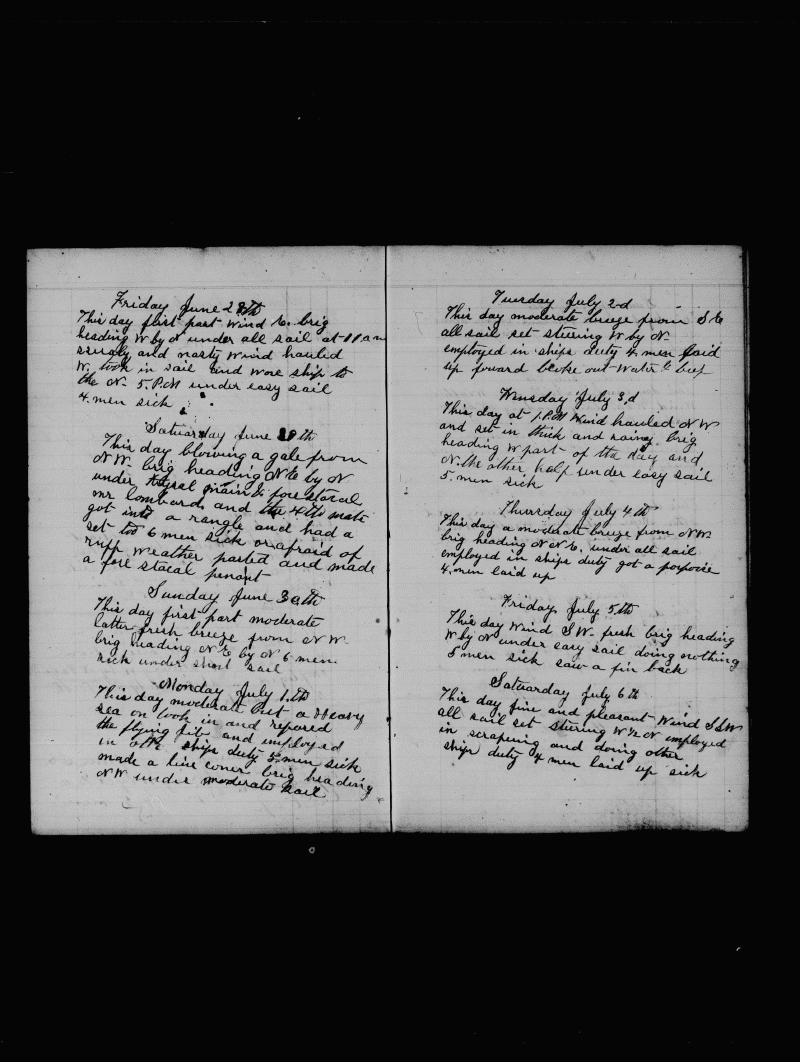 Friday June 28th
This day first part wind E. brig
heading W by N under all sail at 11 am
squaly and nasty wind hauled
W. took in sail and wore ship to
the N. 5 P.M under easy sail
4. men sick
Satuarday June 29th
This day blowing a gale from
N W. brig heading N E by N
under main & fore stacal
mr lombard and the 4th mate
got into a rangle and had a
set too 6 men sick or afraid of
ruff weather parted and made
a fore stacal penant
Sunday June 30th
This day first part moderate
latter fresh breeze from N W.
brig heading N. E by N 6 men
sick under short sail
Monday July 1.th
This day moderate but a Heavy
sea on took in and repared
the flying jib and employed
in ships duty 5. men sick
made a line coner brig heading
N W under moderate sail
Tuesday July 2d
This day moderate breeze from S E
all sail set stering W by N.
employed in ships duty 4 men laid
up forward broke out water & beef
Wensday July 3,d
This day at 1. P.M Wind hauled N W
and set in thick and rainy brig
heading W part of the day and
N. the other half under easy sail
5. men sick
Thursday July 4th
This day a moderate breeze from N W.
brig heading N N E. under all sail
employed in ships duty got a porpoise
4. men laid up
Friday, July 5th
This day Wind S W. fresh brig heading
W by N under easy sail doing nothing
5 men sick saw a fin back
Satuarday July 6th
This day fine and pleasant Wind S S W
all sail set stering employed
in scrapeing and doing other
ships duty 4 men laid up sick